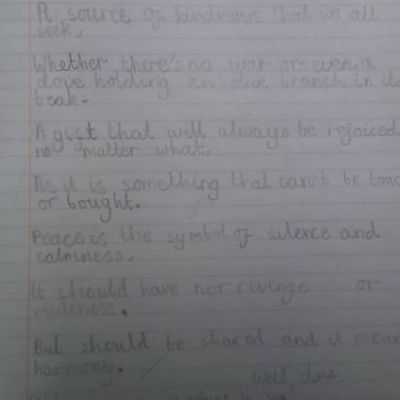 A source of kindness that we all
seek,
Whether there's no war or even a
dove holding an olive branch in its
beak.
A gift that will always be rejoiced
no matter what,
As it is something that can't be touc
or bought.
Peace is the symbol of silence and
calmness.
It should have nor revenge or
rudeness.
But should be shared and it mean
harmony.
Well done